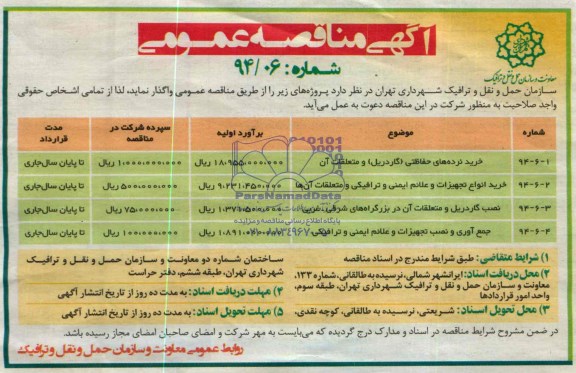 آگهی مناقصه عمومی
شماره: ۹۴/۰۶
معاونت و سازمان حمل و نقل و ترافیک
سازمان حمل و نقل و ترافیک شهرداری تهران در نظر دارد پروژه‌های زیر را از طریق مناقصه عمومی واگذار نماید، لذا از تمامی اشخاص حقوقی
واجد صلاحیت به منظور شرکت در این مناقصه دعوت به عمل می‌آید.
شماره موضوع برآورد اولیه سپرده شرکت در مناقصه مدت قرارداد
۹۴-۶-۱ خرید نرده‌های حفاظتی (گاردریل) و متعلقات آن ریال ۱،۰۰۰،۰۰۰،۰۰۰ ریال تا پایان سال‌جاری
۹۴-۶-۲ خرید انواع تجهیزات و علائم ایمنی و ترافیکی و متعلقات آن‌ها ریال ۵۰۰،۰۰۰،۰۰۰ ریال تا پایان سال‌جاری
۹۴-۶-۳ نصب گاردریل و متعلقات آن در بزرگراه‌های شرقی، غربی ریال ۷۵،۰۰۰،۰۰۰ ریال تا پایان سال‌جاری
۹۴-۶-۴ جمع آوری و نصب تجهیزات و علائم ایمنی و ترافیکی ریال ۱۰۰،۰۰۰،۰۰۰ ریال تا پایان سال‌جاری
ParsNamadData
پایگاه اطلاع رسانی مناقصه و مزایده
۱) شرایط متقاضی: طبق شرایط مندرج در اسناد مناقصه
۲) محل دریافت اسناد: ایرانشهر شمالی، نرسیده به طالقانی، شماره ۱۳۳،
معاونت و سازمان حمل و نقل و ترافیک شهرداری تهران، طبقه سوم،
واحد امور قراردادها
۳) محل تحویل اسناد: شریعتی، نرسیده به طالقانی، کوچه نقدی،
ساختمان شماره دو معاونت و سازمان حمل و نقل و ترافیک
شهرداری تهران، طبقه ششم، دفتر حراست
۴) مهلت دریافت اسناد: به مدت ده روز از تاریخ انتشار آگهی
۵) مهلت تحویل اسناد: به مدت ده روز از تاریخ انتشار آگهی
در ضمن مشروح شرایط مناقصه در اسناد و مدارک درج گردیده که می‌بایست به مهر شرکت و امضای صاحبان امضای مجاز رسیده باشد.
روابط عمومی معاونت و سازمان حمل و نقل و ترافیک